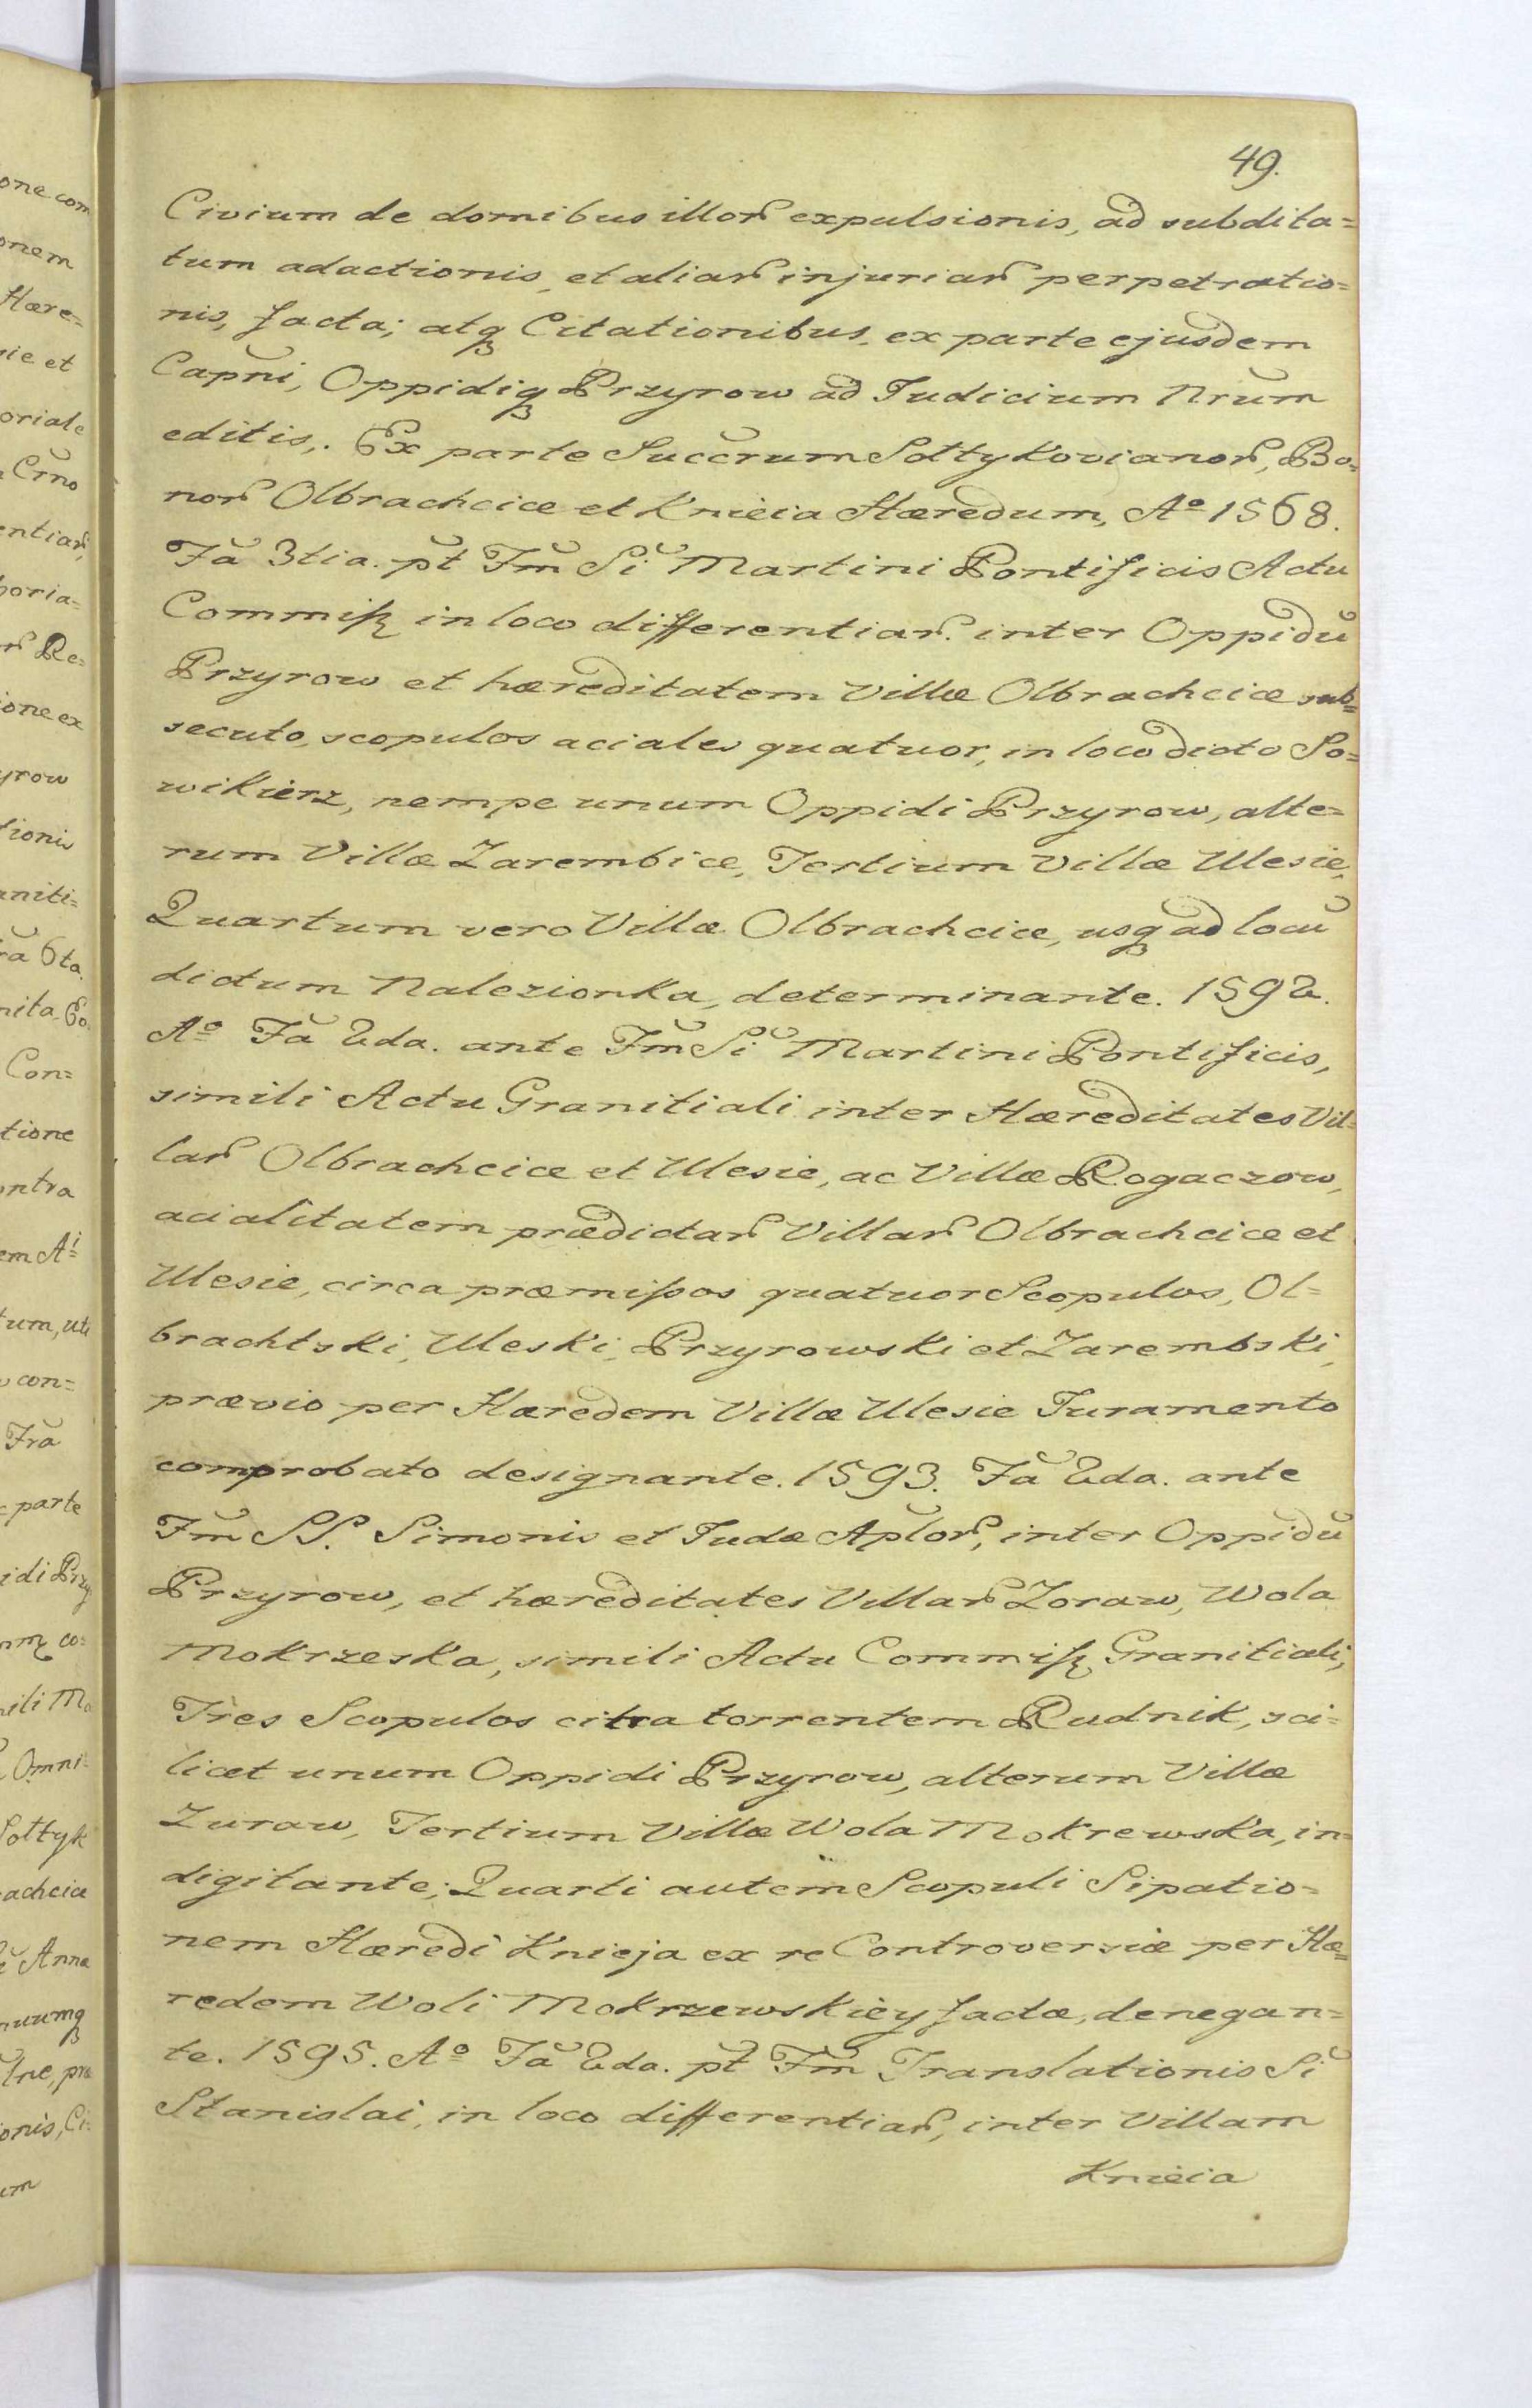 49.
Civium de domibus illoꝝ expulsionis, ad subdita=
tum adactionis, et aliaꝝ injuriaꝝ perpetratio=
nis, facta; atqꝫ Citationibus, ex parte ejusdem
Capñi, Oppidiqꝫ Przyrow ad Judicium Nrũm
editis,. Ex parte Succr̃um Sołtykovianoꝝ, Bo=
noꝝ Olbrachcice et Knieia Hæredum, Aº 1568.
Fã 3tia. pt̃ Fm̃ Sĩ Martini Pontificis Actu
Commißꝫ in loco differentiaꝝ. inter Oppidũ
Przyrow et hæreditatem Villæ Olbrachcice sub=
secuto, scopulos aciales quatuor, in loco dicto So=
wikierz, nempe unum Oppidi Przyrow, alte=
rum Villæ Zarembice, Tertium Villæ Ulesie,
Quartum vero Villæ Olbrachcice, usqꝫ ad locũ
dictum Nalezionka, determinante. 1592.
Aº Fã 2da. ante Fm̃ Sĩ Martini Pontificis,
simili Actu Granitiali inter Hæreditates Vil=
laꝝ Olbrachcice et Ulesie, ac Villæ Rogaczow,
acialitatem prædictaꝝ Villaꝝ Olbrachcice et
Ulesie, circa præmißos quatuor Scopulos, Ol=
brachtski, Uleski, Przyrowski et Zarembski,
prævio per Hæredem Villæ Ulesie Juramento
comprobato designante. 1593. Fã 2da. ante
Fm̃ SS. Simonis et Judæ Aplõꝝ, inter Oppidũ
Przyrow, et hæreditates Villaꝝ Zoraw, Wola
Mokrzeska, simili Actu Commißꝫ Granitiali,
Tres Scopulos citra torrentem Rudnik, sci=
licet unum Oppidi Przyrow, alterum Villæ
Zuraw, Tertium Villæ Wola Mokrewska, in=
digitante; Quarti autem Scopuli Sipatio=
nem Hæredi Knieja ex re Controversiæ per Hæ=
redem Woli Mokrzewskiey factæ, denegan=
te. 1595. Aº Fã 2da. pt̃ Fm̃ Translationis Sĩ
Stanislai, in loco differentiaꝝ, inter Villam
Knieia